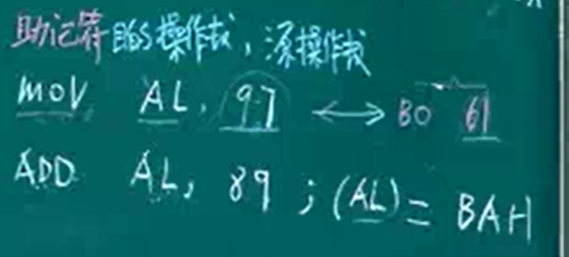 助记符 目的操作数，源操作数
MOV AL, 97 ⟷ B0 61
ADD AL, 89 ; (AL) = BAH